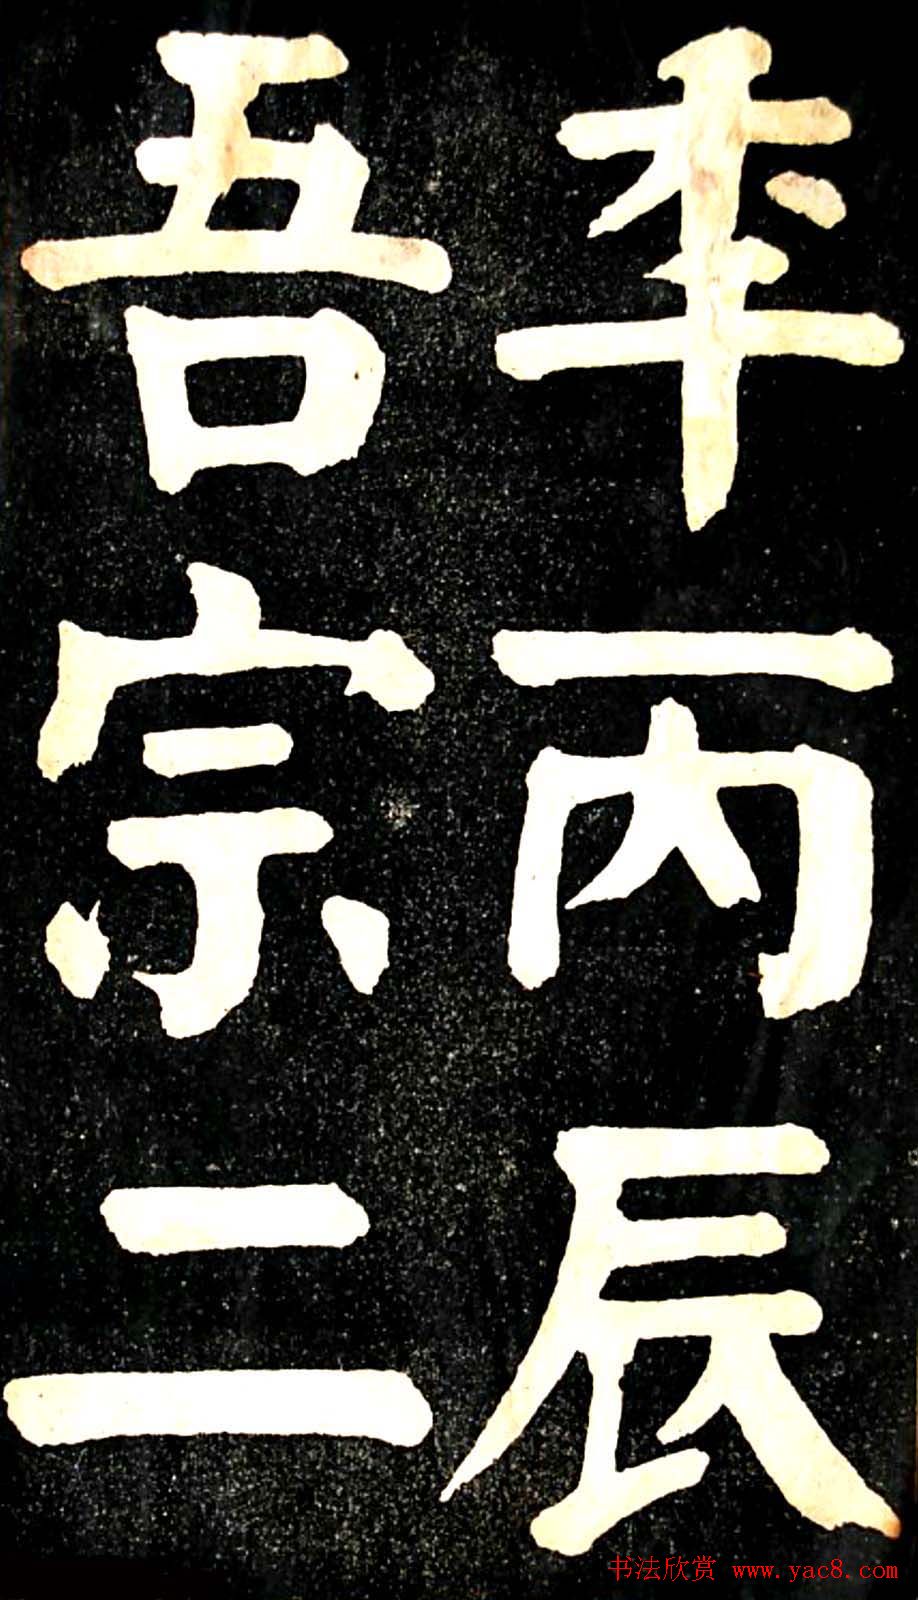 秊丙辰
吾宗二
书法欣赏 www.yac8.com